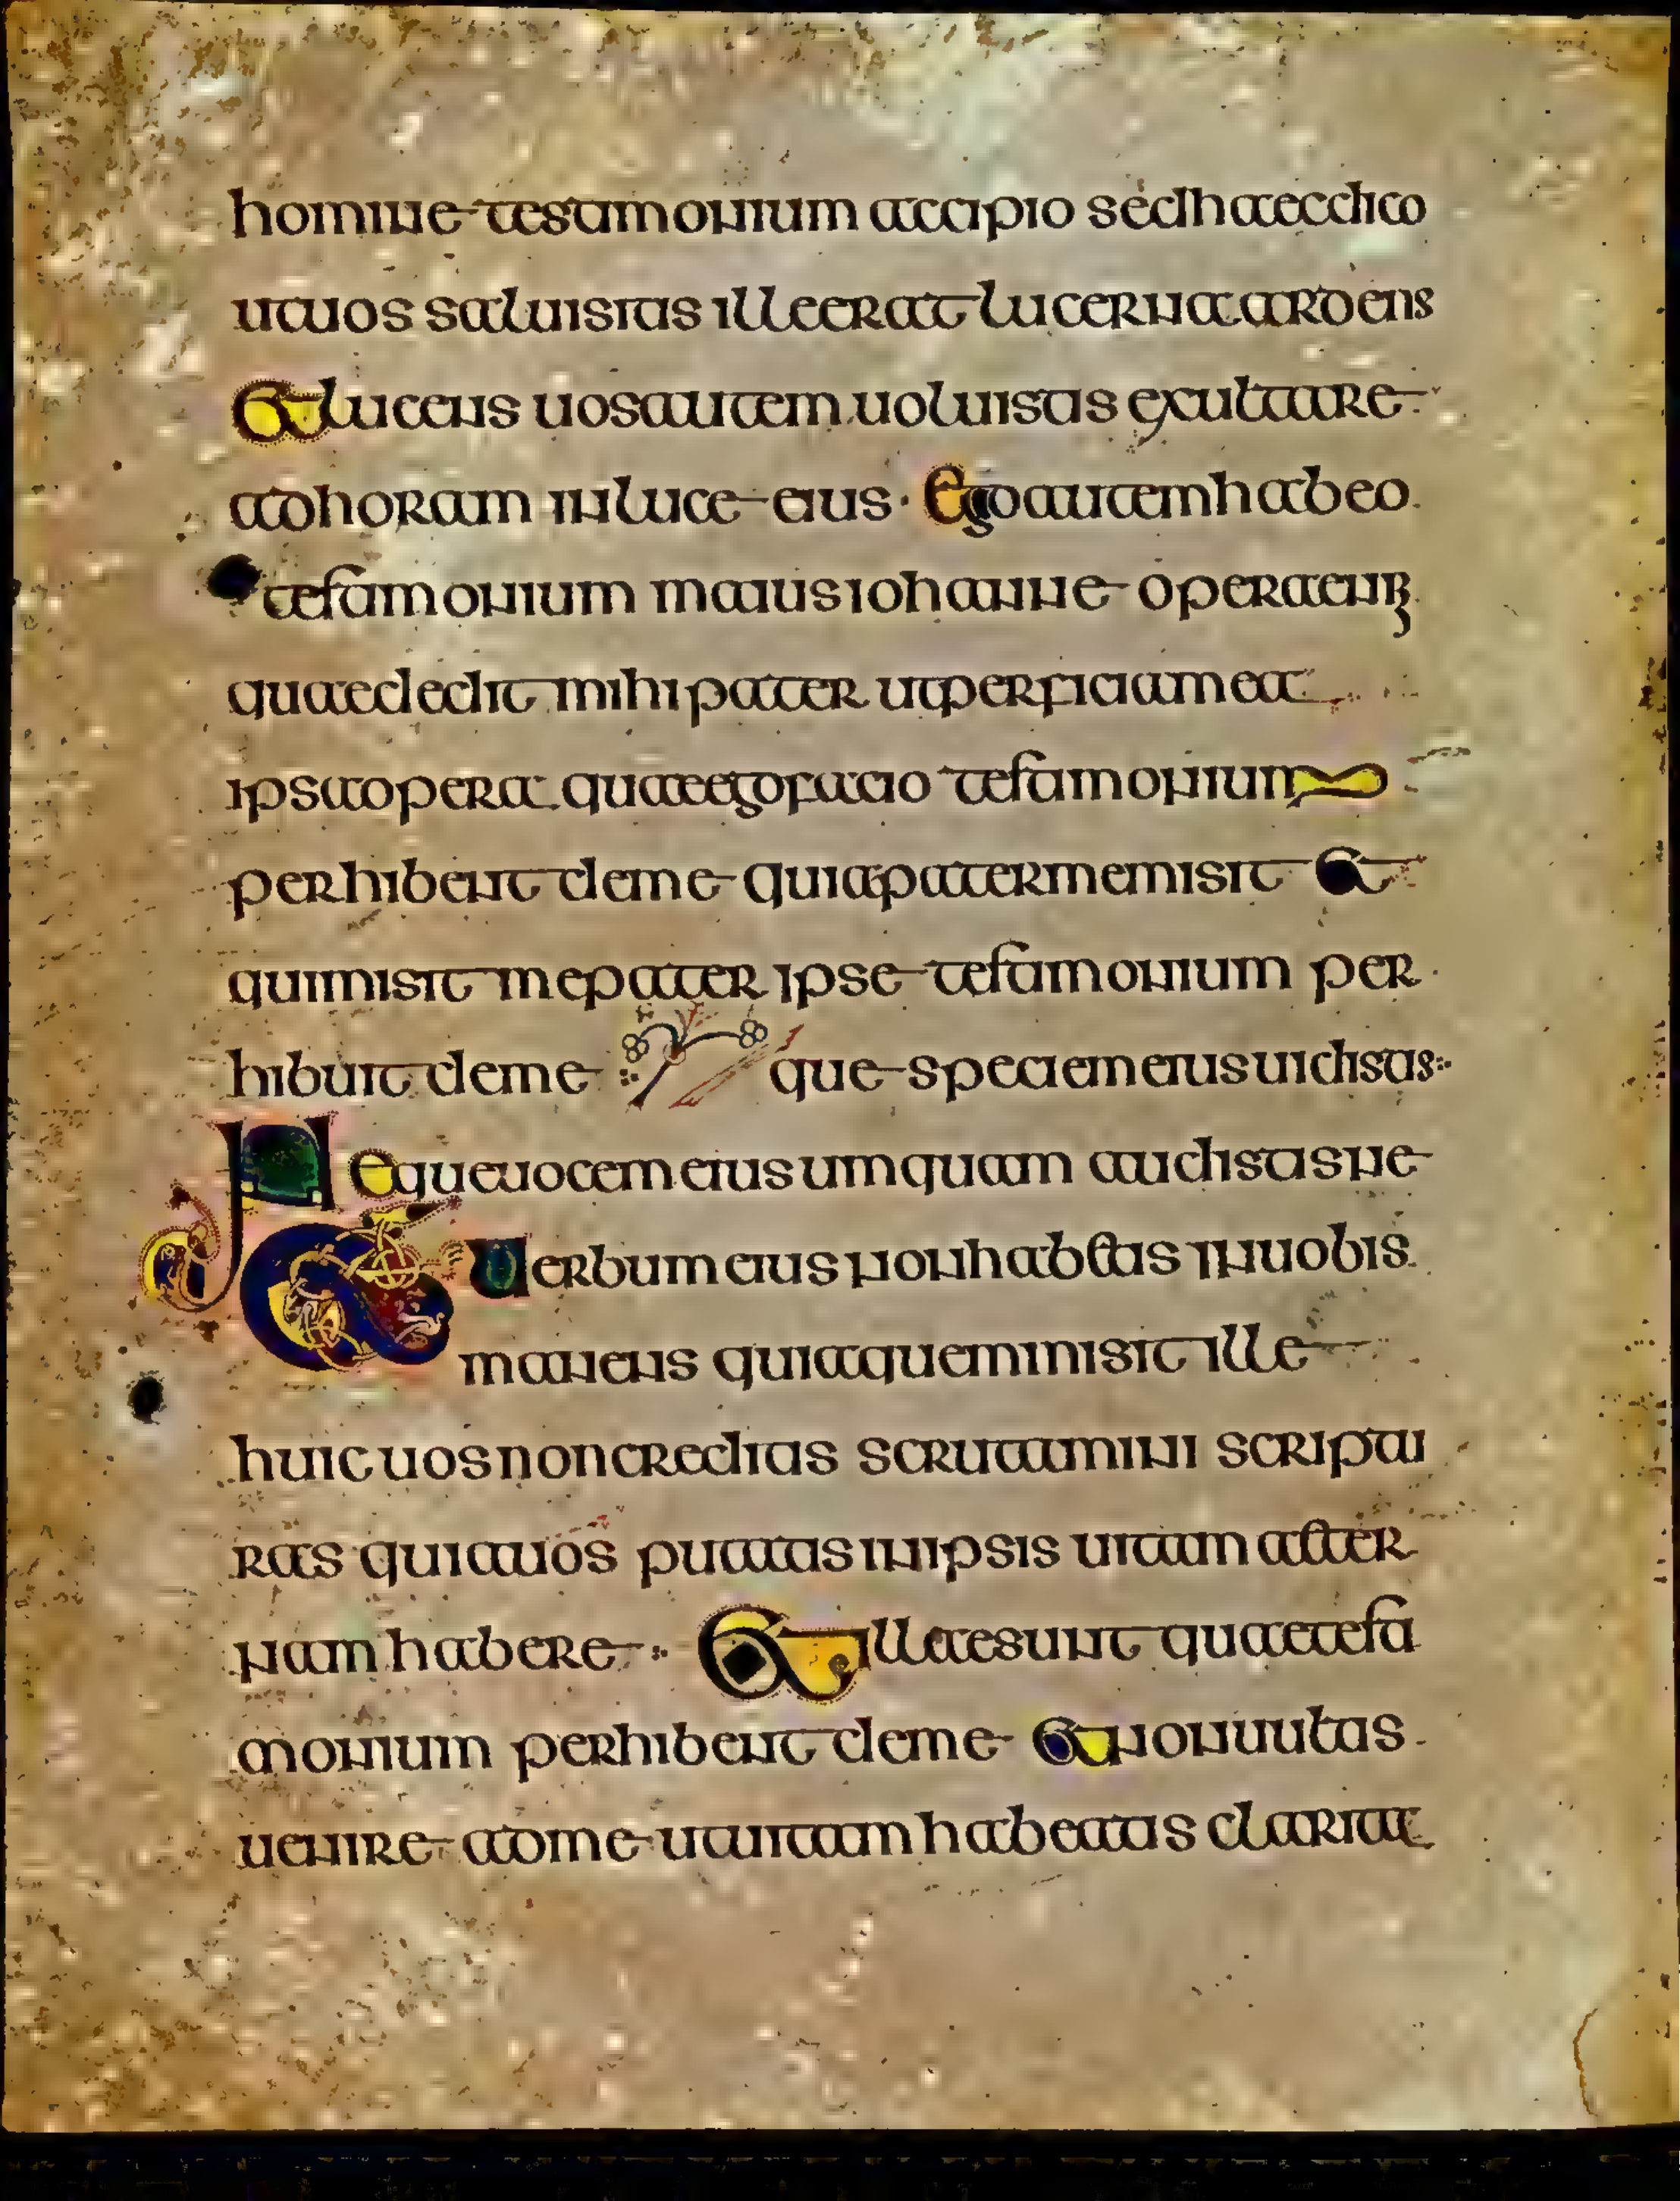 homine testimonium accipio sed haec dico
ut uos salui sitis ille erat lucerna ardens
Et lucens uos autem uoluistis exultare
ad horam in luce eius · Ego autem habeo
testimonium maius iohanne opera enim
quae dedit mihi pater ut perficiam ea
ipsa opera quae ego facio testimonium
perhibent de me quia pater me misit Et
qui misit me pater ipse testimonium per
hibuit de me que speciem eius uidistis
Neque uocem eius umquam audistis ne
Et Uerbum eius non habetis in uobis
manens quia quem misit ille
huic uos non creditis scrutamini scriptu
ras quia uos putatis in ipsis uitam aeter
nam habere · Et illae sunt quae testi
monium perhibent de me Et non uultis
uenire ad me ut uitam habeatis claritate